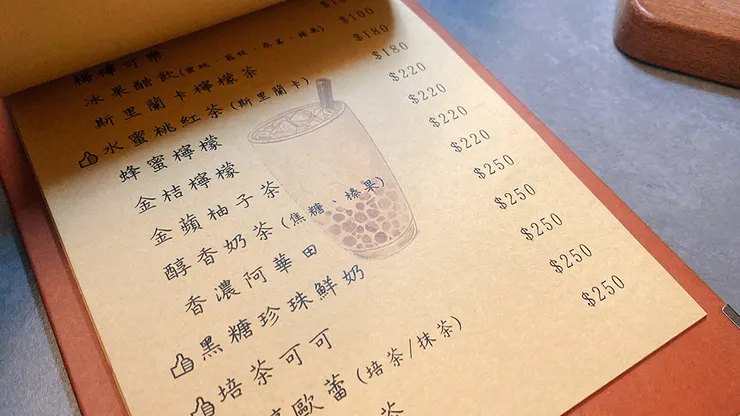 可樂 $100
冰果醋飲(蜜桃、荔枝、桑葚、蘋果) $180
斯里蘭卡檸檬茶 $180
水蜜桃紅茶(斯里蘭卡) $220
蜂蜜檸檬 $220
金桔檸檬 $220
金蘋柚子茶 $220
醇香奶茶(焦糖、榛果) $250
香濃阿華田 $250
黑糖珍珠鮮奶 $250
培茶可可 $250
歐蕾(培茶/抹茶) $250
茶